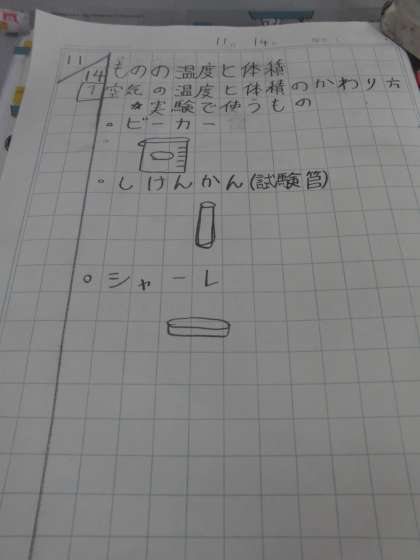 11. 14.
11/14 ものの温度と体積
1 空気の温度と体積のかわり方
☆実験で使うもの
◦ビーカー
◦しけんかん(試験管)
◦シャーレ